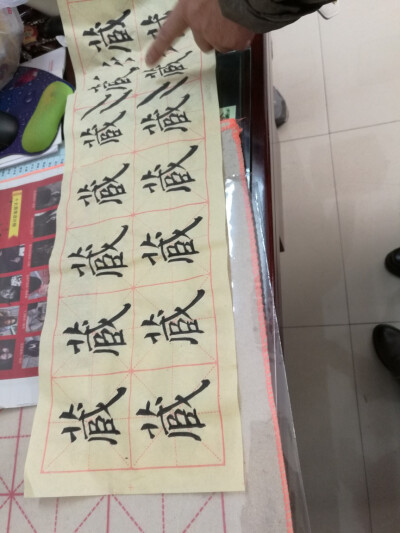 藏
藏 藏
藏 藏
藏 藏
藏 藏
藏 藏
藏 藏